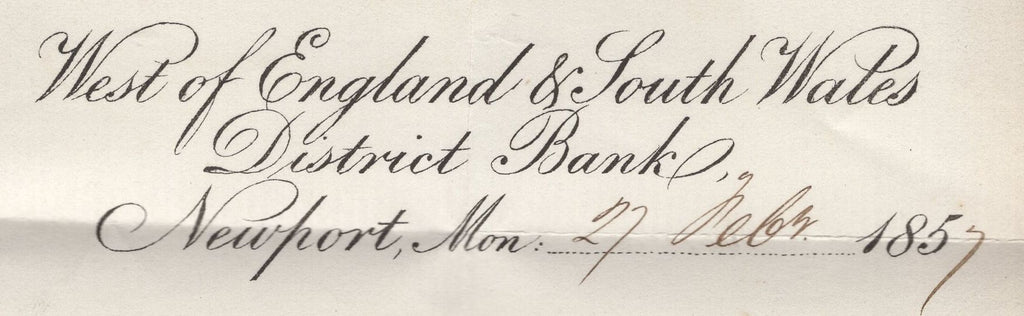 West of England & South Wales
District Bank,
Newport, Mon: 27 Feby. 1857